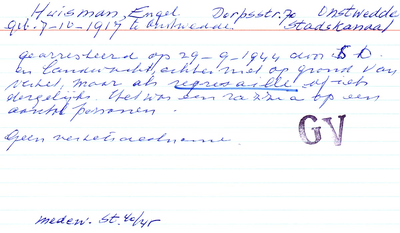 Huisman, Engel Dorpsstr. 70 Onstwedde
geb. 7-10-1917 te Onstwedde. Stadskanaal
gearresteerd op 29-9-1944 door S.D.
en landwacht, echter niet op grond van
verzet, maar als represaille of iets
dergelijks. Het was een razzia op een
aantal personen.
Geen verzetsdeelname.
GV
medew. St. 40/45